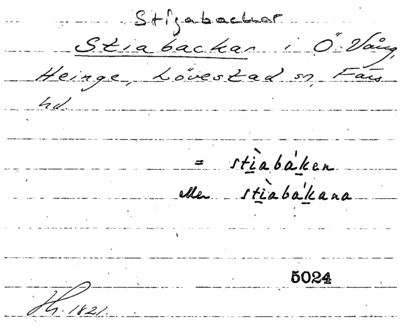 Stigabackar
Stiabackar i Ö. Vång,
Heinge, Lövestad sn, Färs
hd.
= stìabáken
eller stìabákana
5024
Hy. 1821.